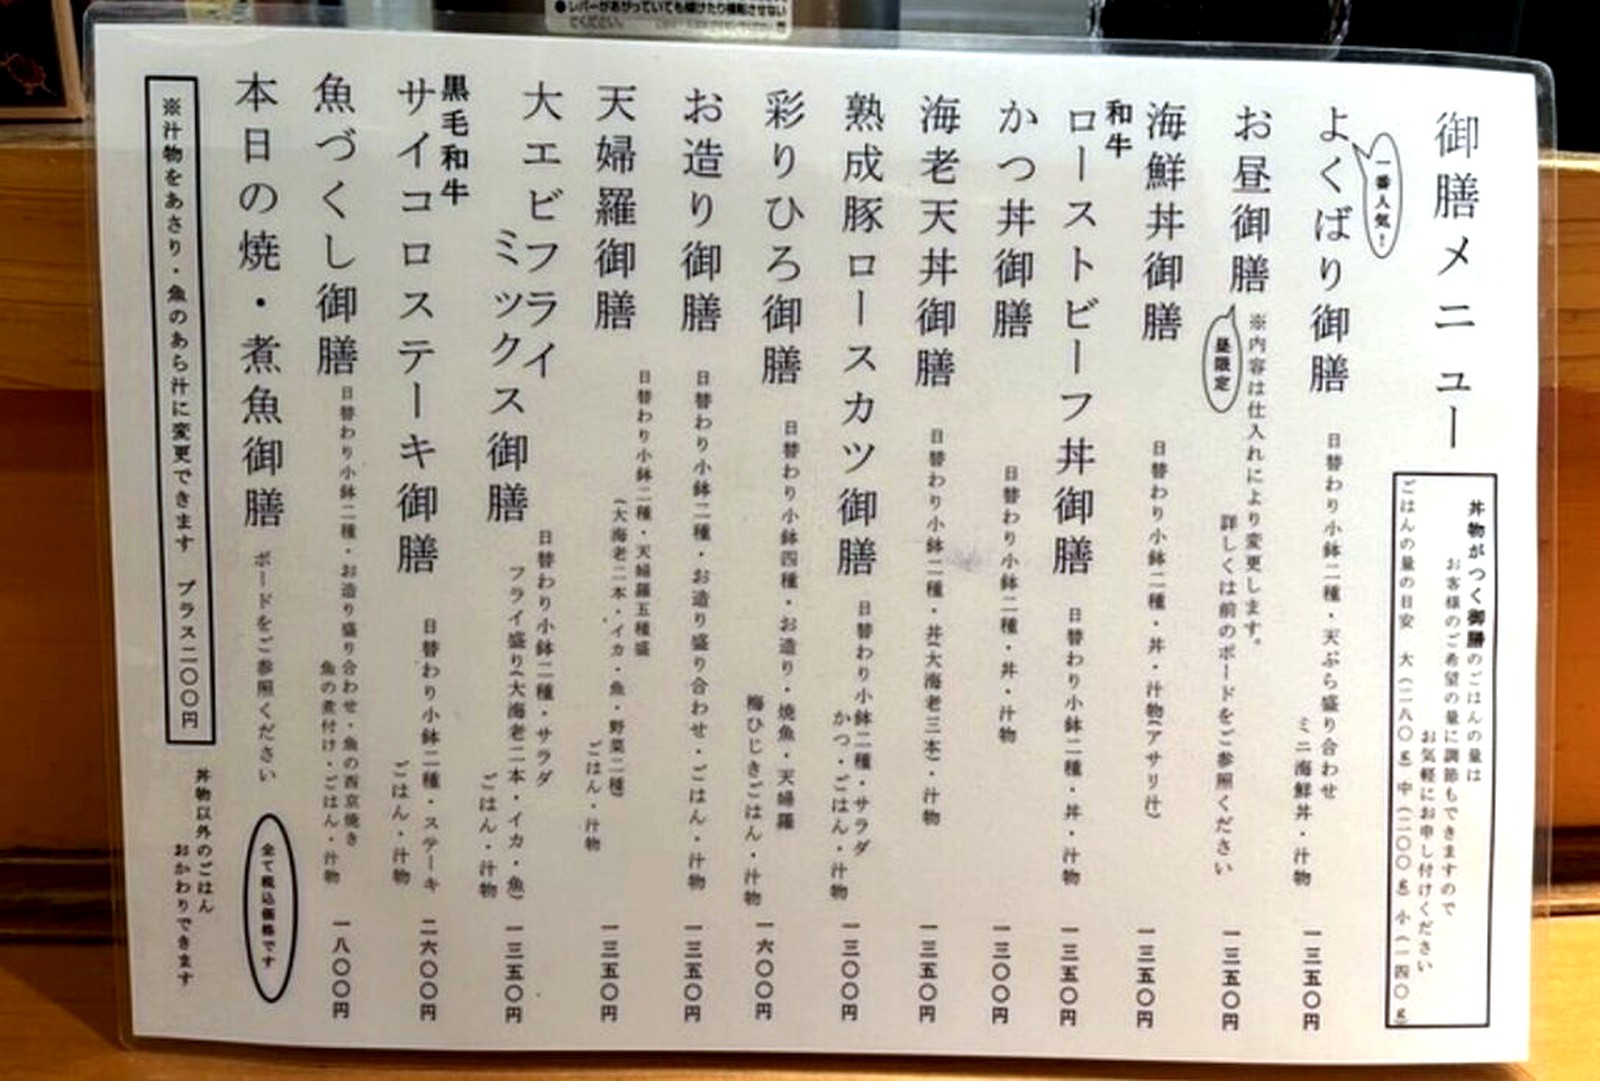 ●レバーがあがっていても傾けたり横転させない
御膳メニュー
丼物がつく御膳のごはんの量は
お客様のご希望の量に調節もできますので
お気軽にお申し付けください
ごはんの量の目安 大(二八〇g) 中(二〇〇g) 小(一四〇g)
一番人気!
よくばり御膳
日替わり小鉢二種・天ぷら盛り合わせ
ミニ海鮮丼・汁物
一三五〇円
お昼御膳
昼限定
※内容は仕入れにより変更します。
詳しくは前のボードをご参照ください
一三五〇円
海鮮丼御膳
日替わり小鉢二種・丼・汁物(アサリ汁)
一三五〇円
和牛
ローストビーフ丼御膳
日替わり小鉢二種・丼・汁物
一三五〇円
かつ丼御膳
日替わり小鉢二種・丼・汁物
一三〇〇円
海老天丼御膳
日替わり小鉢二種・丼(大海老三本)・汁物
一三五〇円
熟成豚ロースカツ御膳
日替わり小鉢二種・サラダ
かつ・ごはん・汁物
一三〇〇円
彩りひろ御膳
日替わり小鉢四種・お造り・焼魚・天婦羅
梅ひじきごはん・汁物
一六〇〇円
お造り御膳
日替わり小鉢二種・お造り盛り合わせ・ごはん・汁物
一三五〇円
天婦羅御膳
日替わり小鉢二種・天婦羅五種盛
(大海老二本・イカ・魚・野菜二種)
ごはん・汁物
一三五〇円
大エビフライ
ミックス御膳
日替わり小鉢二種・サラダ
フライ盛り(大海老二本・イカ・魚)
ごはん・汁物
一三五〇円
黒毛和牛
サイコロステーキ御膳
日替わり小鉢二種・ステーキ
ごはん・汁物
二六〇〇円
魚づくし御膳
日替わり小鉢二種・お造り盛り合わせ・魚の西京焼き
魚の煮付け・ごはん・汁物
一八〇〇円
本日の焼・煮魚御膳
ボードをご参照ください
全て税込価格です
※汁物をあさり・魚のあら汁に変更できます プラス二〇〇円
丼物以外のごはん
おかわりできます